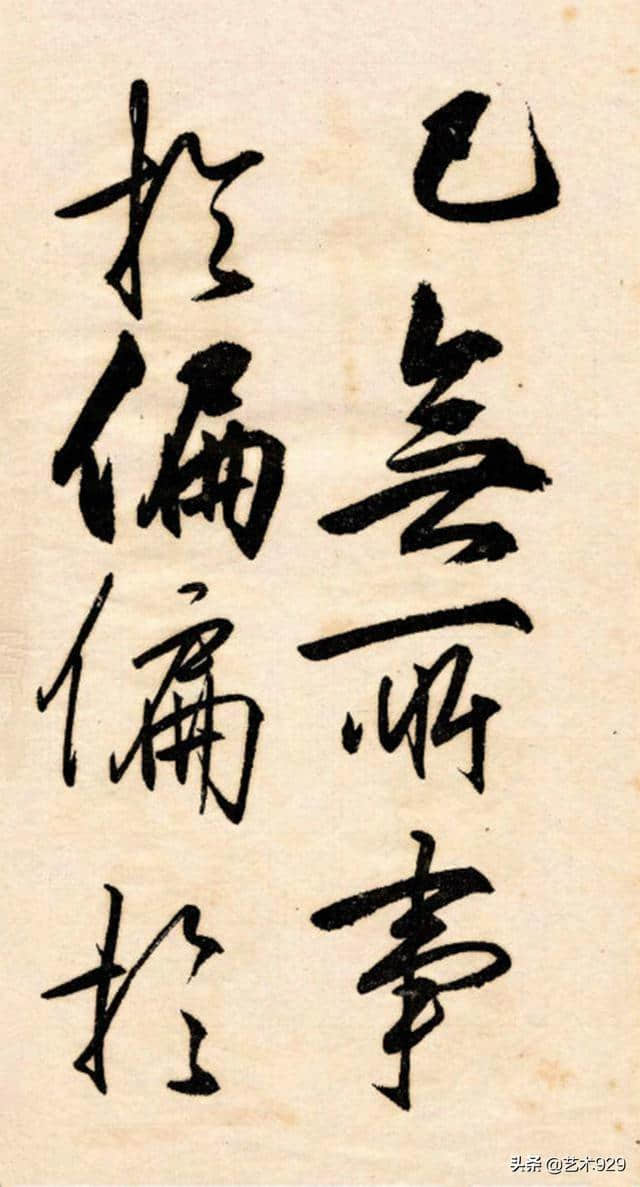 已無所事
於偏偏於
头条 @艺术929